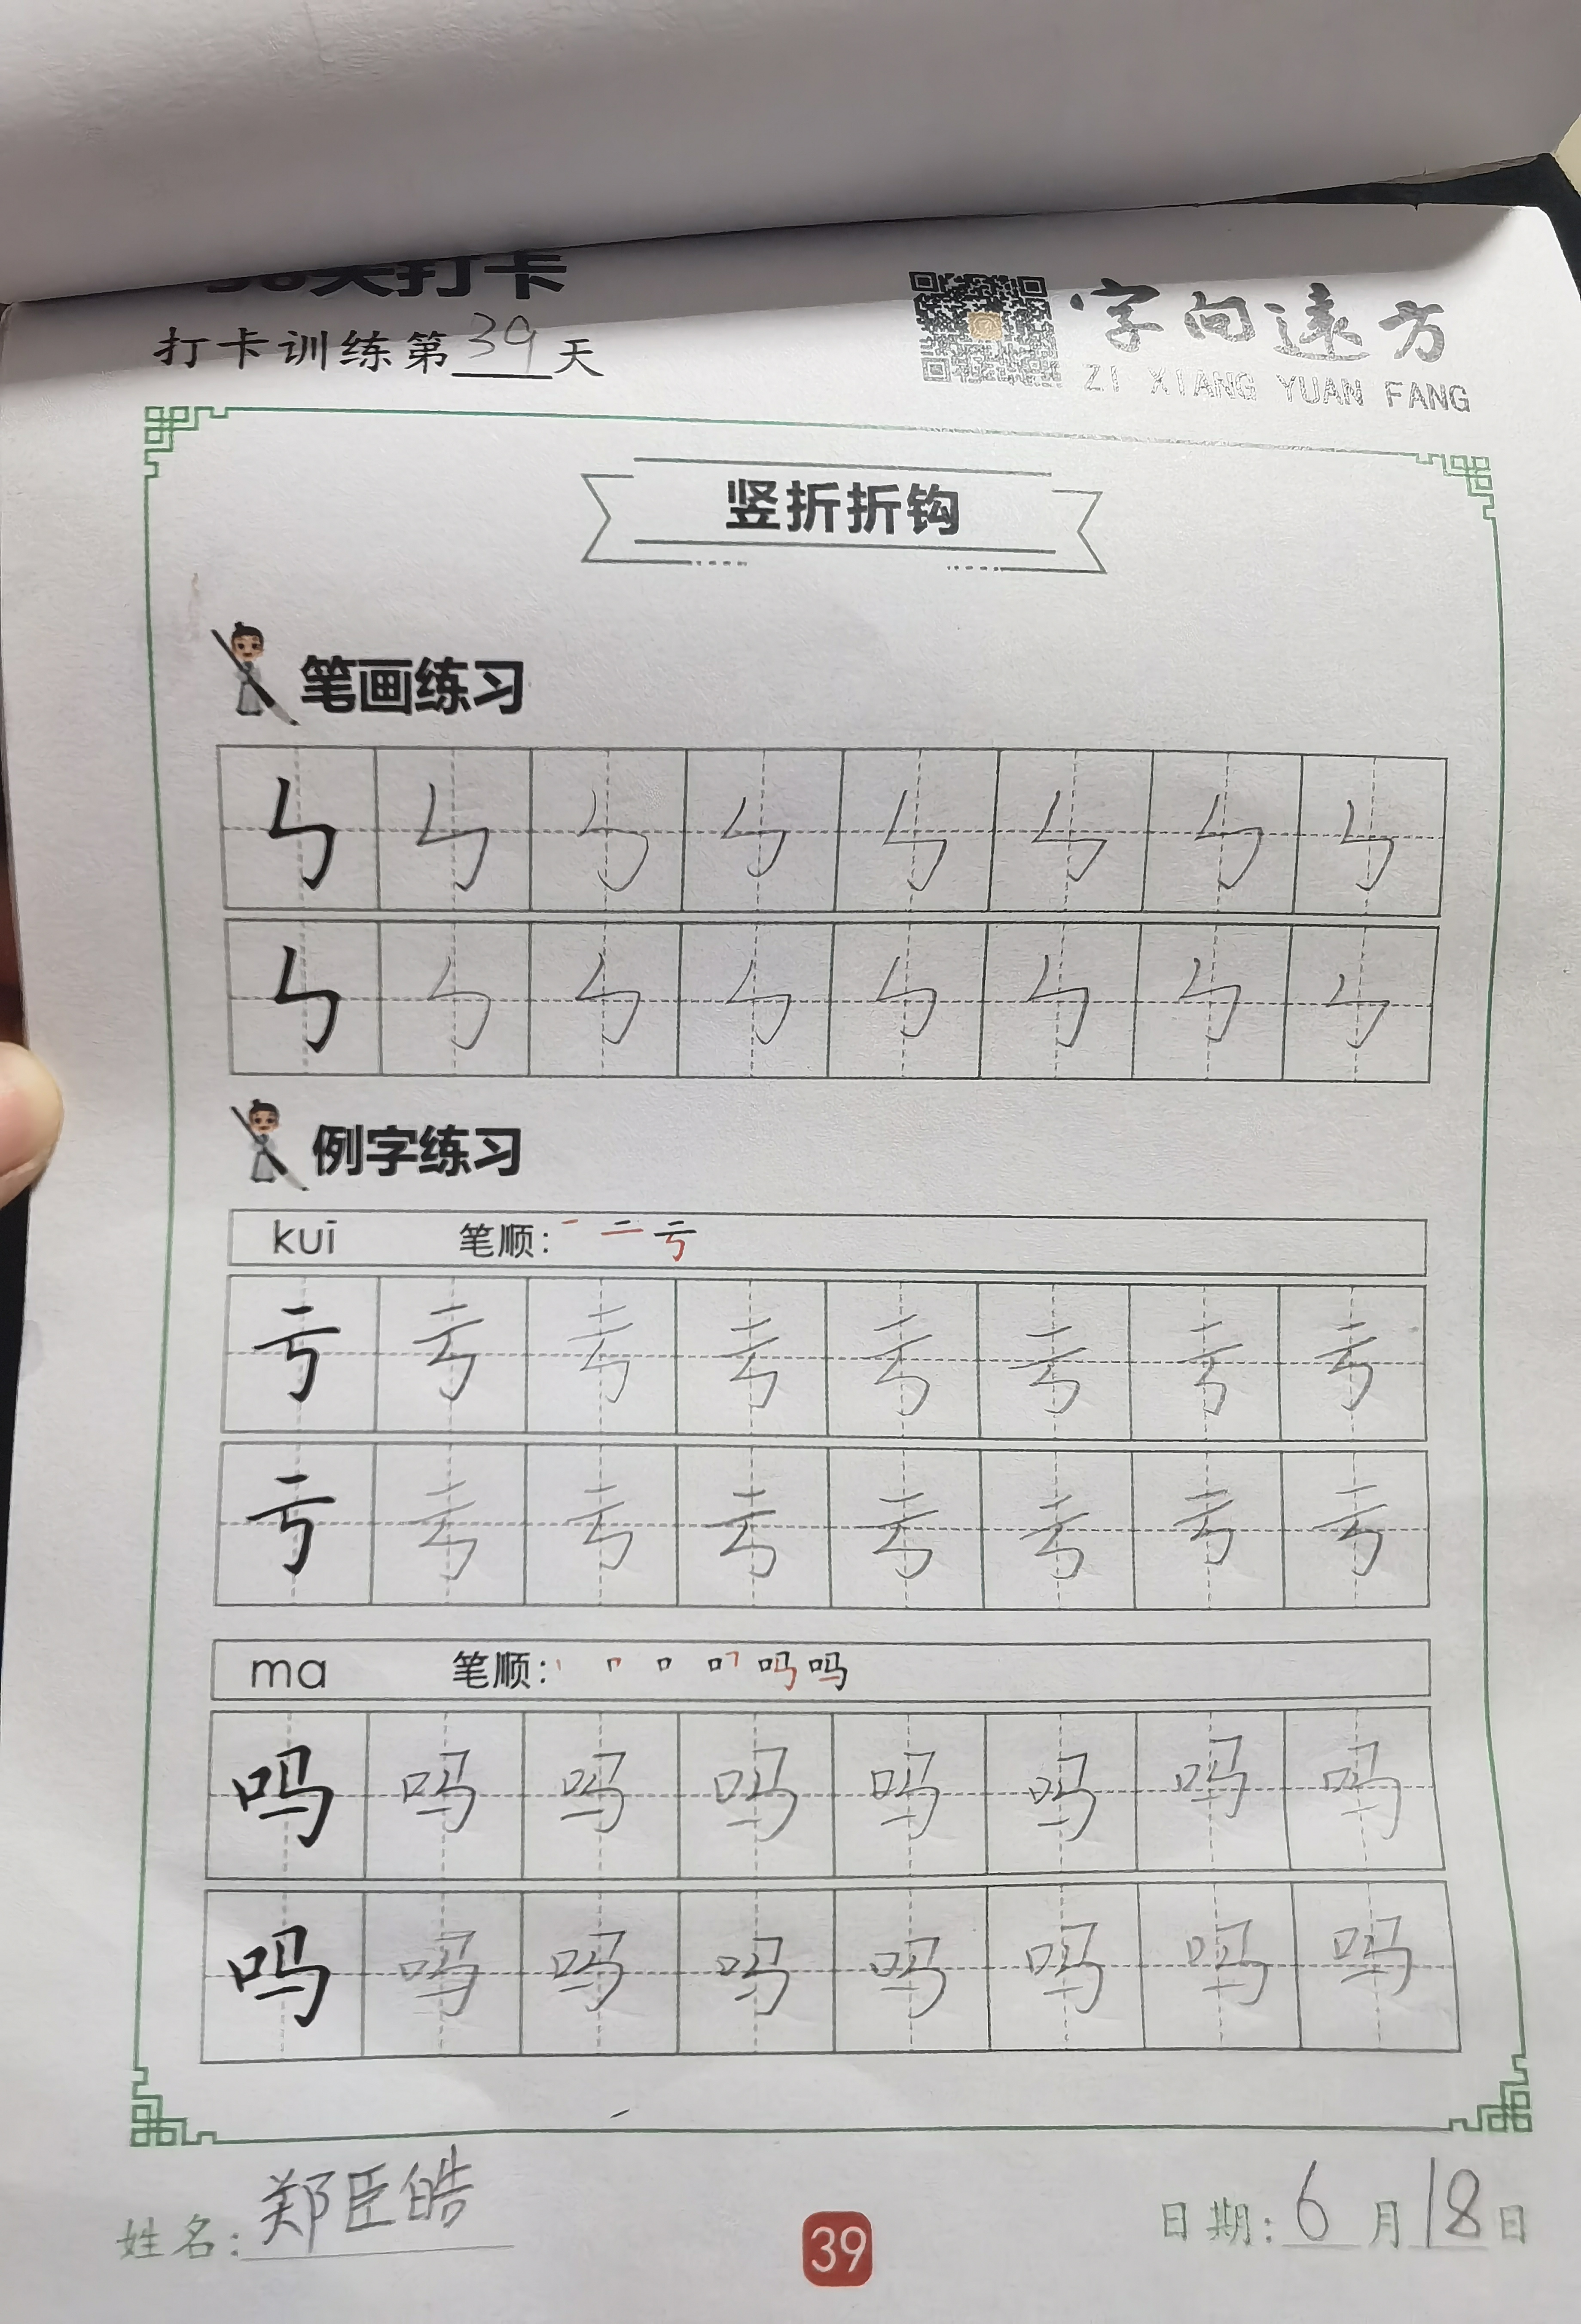 天打卡
打卡训练第39天
字向遠方
ZI XIANG YUAN FANG
竖折折钩
笔画练习
㇉ ㇉ ㇉ ㇉ ㇉ ㇉ ㇉ ㇉
㇉ ㇉ ㇉ ㇉ ㇉ ㇉ ㇉ ㇉
例字练习
kuī 笔顺: 一 二 亏
亏 亏 亏 亏 亏 亏 亏 亏
亏 亏 亏 亏 亏 亏 亏 亏
ma 笔顺: 丨 冂 口 吗 吗
吗 吗 吗 吗 吗 吗 吗 吗
吗 吗 吗 吗 吗 吗 吗 吗
姓名: 郑臣皓
39
日期: 6月18日